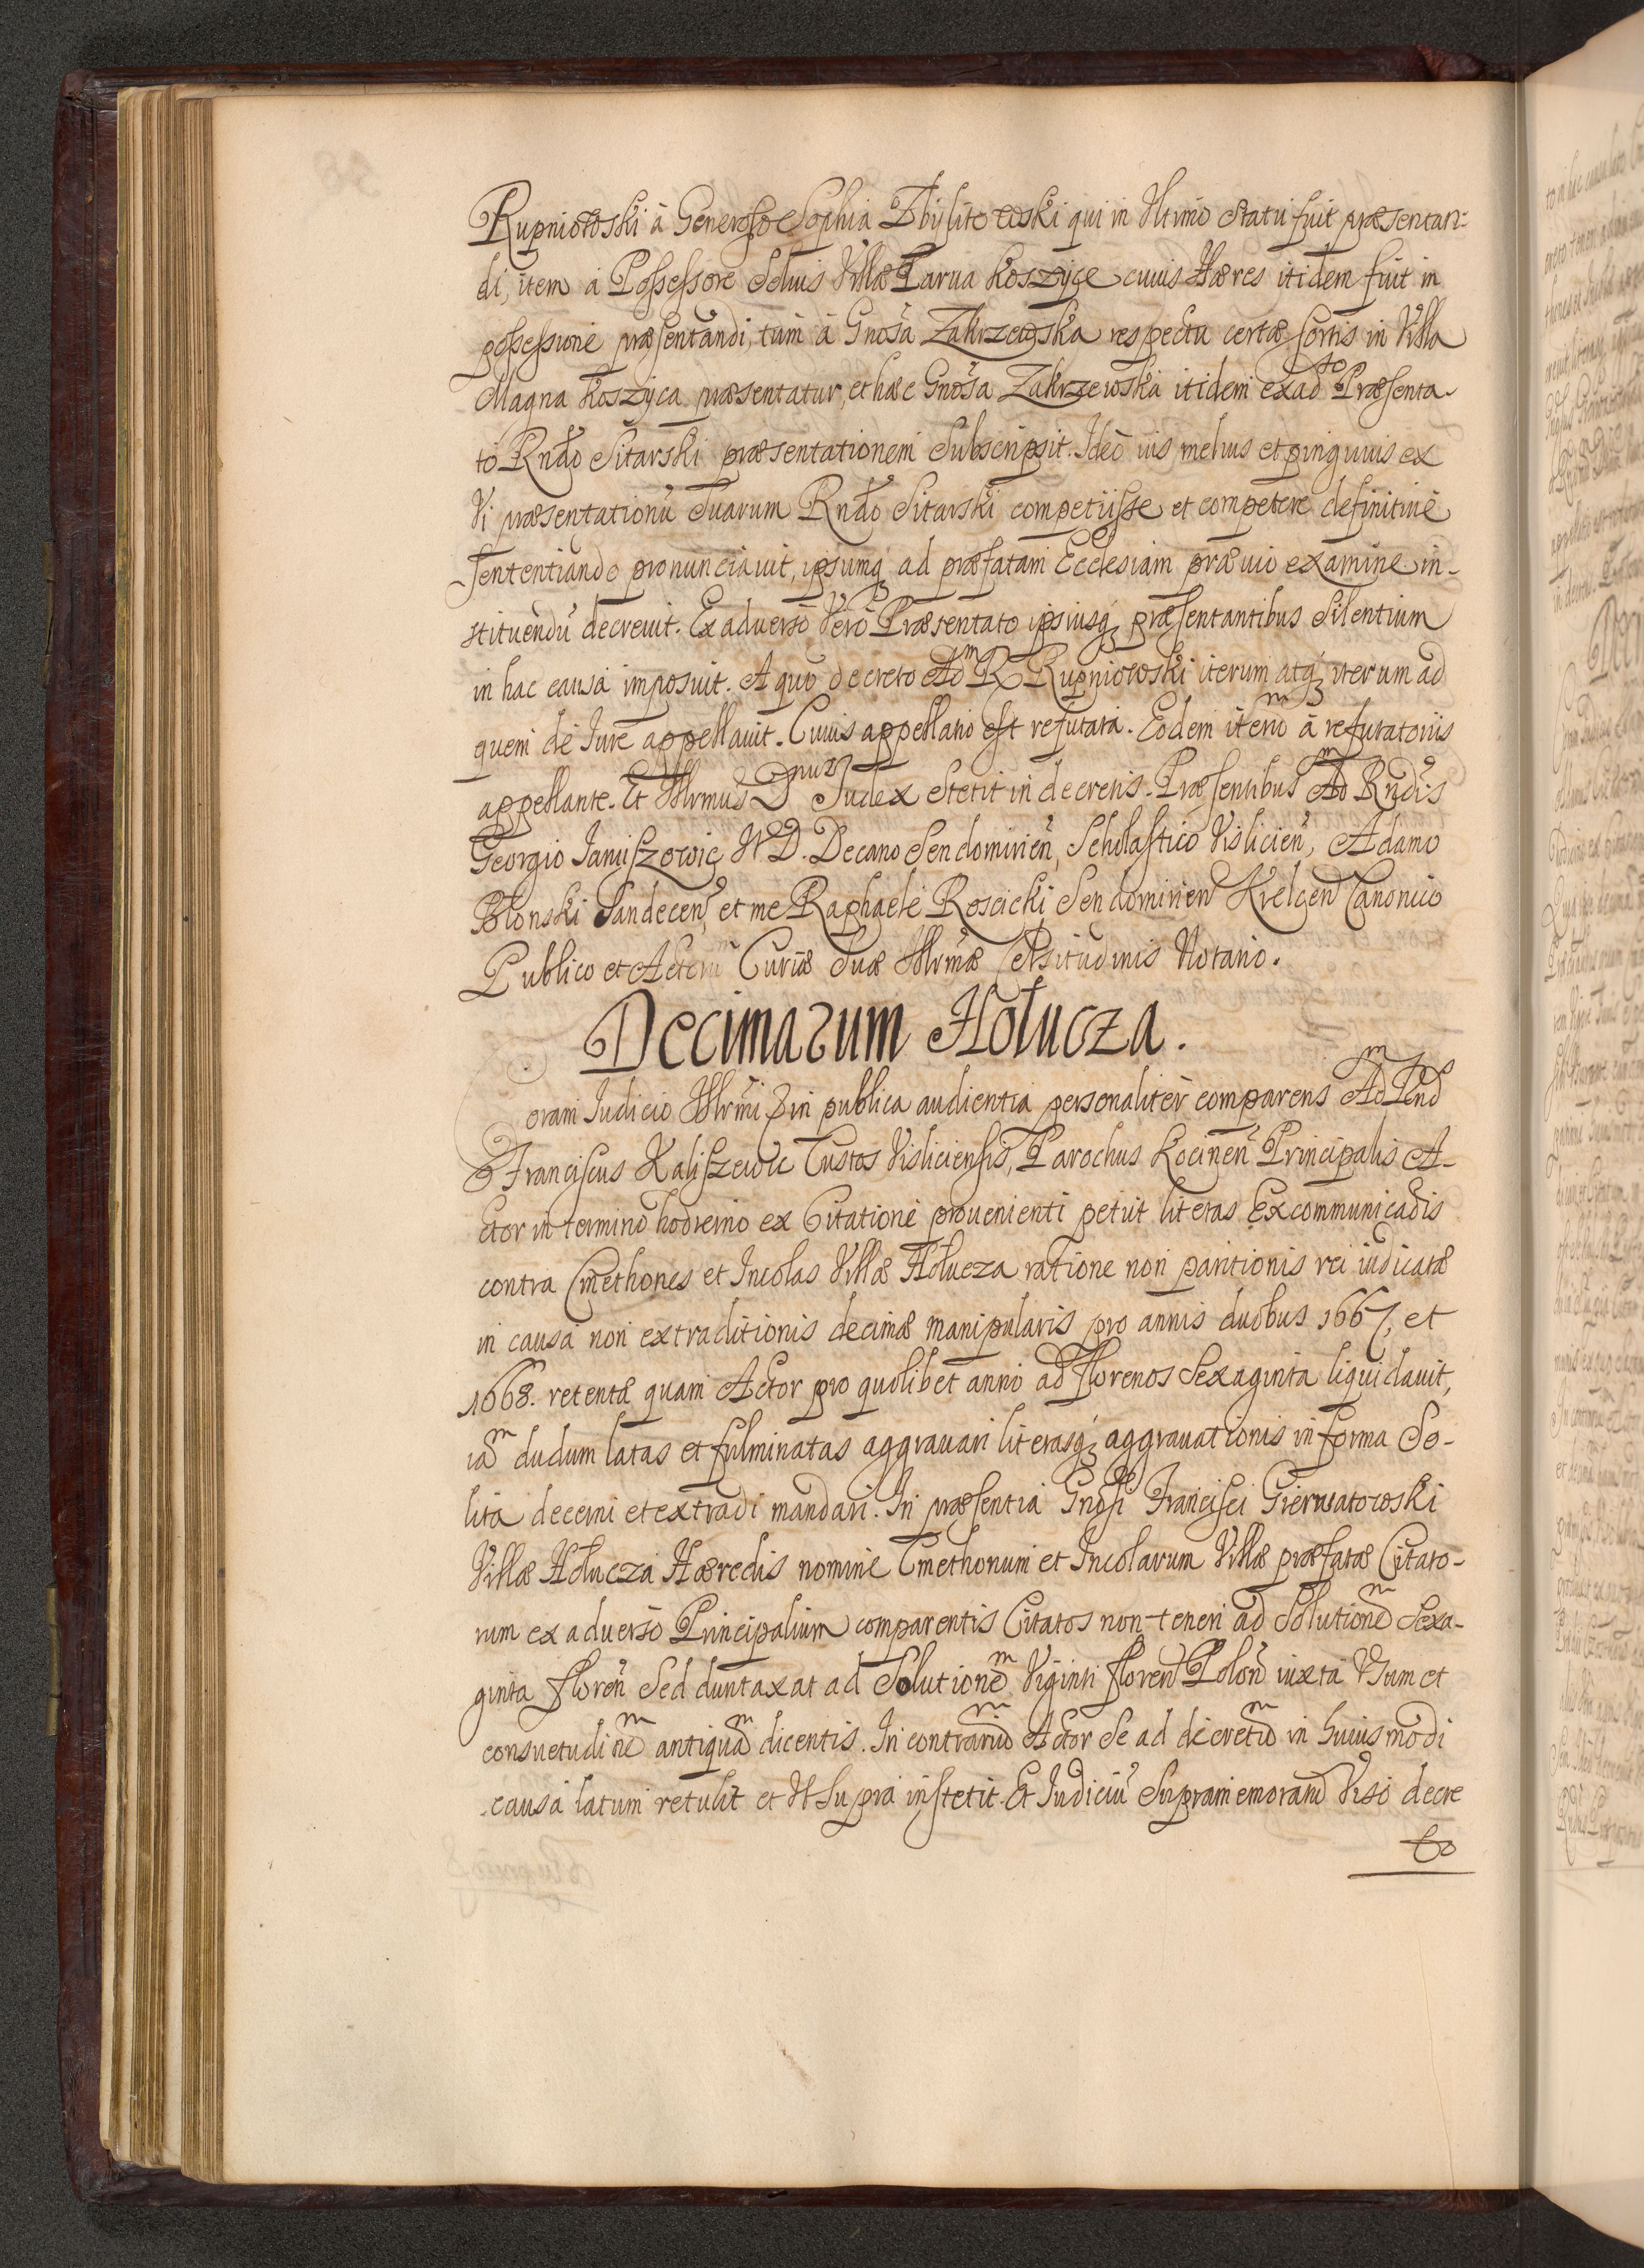 Rupniowski à Generoso Sophia Zbylitowski qui in Ultimo Statu fuit præsentan-
di, item à Possessore Solius Villæ Parua Koszyce cuius Hæres itidem fuit in
possessione præsentandi, tum à Gnosa Zakrzewska respectu certæ sortis in Villa
Magna Koszyca præsentatur, et hæc Gnosa Zakrzewska itidem ex ad.so Præsenta-
to Rndo Sitarski præsentationem Subscripsit. Ideo ius melius et pinguius ex
Vi præsentationũ Suarum Rndo Sitarski competiisse et competere definitiuè
Sententiando pronunciauit, ipsumq, ad præfatam Ecclesiam præuio examine in-
stituendũ decreuit. Ex aduerso Vero Præsentato ipsiusq, præsentantibus Silentium
in hac causa imposuit. A quo decreto Adm R Rupniowski iterum atq, iterum ad
quem de Iure appellauit. Cuius appellatio est refutata. Eodem itemm à refutatoriis
appellante. Et Illrmus D Iudex Stetit in decretis. Præsentibus Adm Rndis
Georgio Januszowic V.D. Decano Sendomirien, Scholastico Vislicien, Adamo
Błonski Sandecen, et me Raphaele Roscicki Sendomirien Kielcen Canonico
Publico et Actorũ Curiæ Suæ Illrmæ Celsitudinis Notario.
Decimarum Hołucza.
Coram Iudicio Illrmi & in publica audientia personaliter comparens Adm Vend
Franciscus Kaliszewic Custos Visliciensis, Parochus Kocinen Principalis A-
ctor in termino hodierno ex Citatione prouenienti petiit literas Excommunicaõis
contra Cmethones et Incolas Villæ Hołucza ratione non paritionis rei iudicatæ
in causa non extraditionis decimæ manipularis pro annis duobus 1667, et
1668. retentæ quam Actor pro quolibet anno ad florenos Sexaginta liquidauit,
iam dudum latas et fulminatas aggrauari literasq, aggrauationis in forma So-
lita decerni et extradi mandari. In præsentia Gnosi Francisci Gierwatowski
Villæ Hołucza Hæredis nomine Cmethonum et Incolarum Villæ præfatæ Citato-
rum ex aduerso Principalium comparentis Citatos non teneri ad Solutionem Sexa-
ginta floren Sed duntaxat ad Solutionem Viginti floren Polon iuxta Vsum et
consuetudinem antiquam dicentis. In contrarium Actor Se ad decretum in huiusmodi
causa latum retulit et Vt Supra institit. Et Iudiciũ Supramemoratũ Viso decre
to